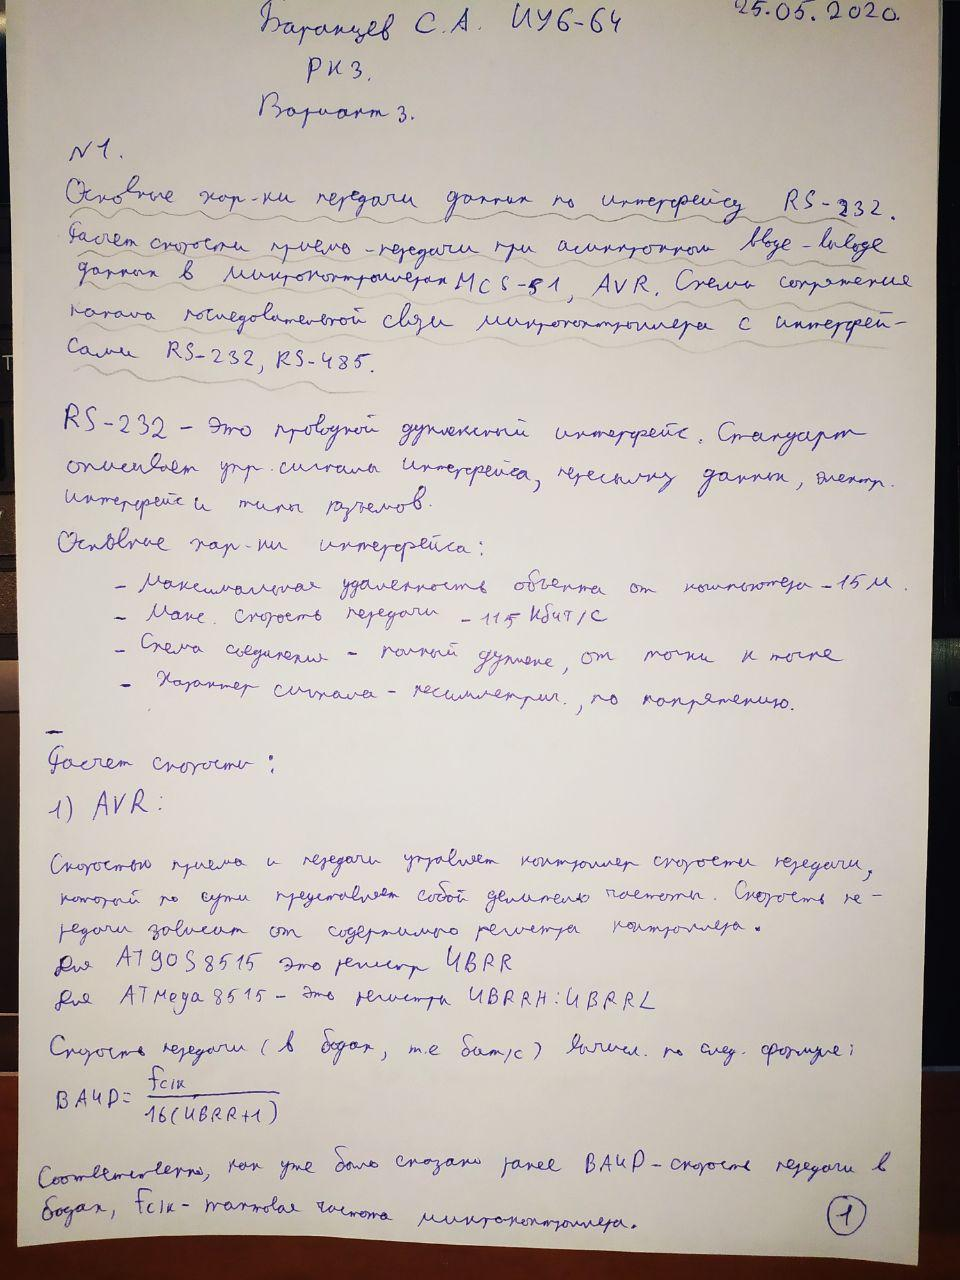 Баранцев С.А. ИУ6-64
25.05.2020.
РК3.
Вариант 3.
№1.
Основные хар-ки передачи данных по интерфейсу RS-232.
Расчет скорости приемо-передачи при асинхронном вводе-выводе
данных в микроконтроллерах MCS-51, AVR. Схема сопряжения
канала последовательной связи микроконтроллера с интерфей-
сами RS-232, RS-485.
RS-232 – Это проводной дуплексный интерфейс. Стандарт
описывает упр. сигналы интерфейса, пересылку данных, электр.
интерфейс и типы разъемов.
Основные хар-ки интерфейса:
- Максимальная удаленность объекта от компьютера – 15 м.
- Макс. скорость передачи – 115 Кбит/С
- Схема соединения – полный дуплекс, от точки к точке
- Характер сигнала – несимметрич., по напряжению.
Расчет скорости:
1) AVR:
Скоростью приема и передачи управляет контроллер скорости передачи,
который по сути представляет собой делитель частоты. Скорость пе-
редачи зависит от содержимого регистра контроллера.
Для AT90S8515 это регистр UBRR
Для ATMega 8515 – это регистры UBRRH:UBRRL
Скорость передачи (в бодах, т.е бит/с) вычисл. по след. формуле:
BAUD = fclk / 16(UBRR+1)
Соответственно, как уже было сказано ранее BAUD – скорость передачи в
бодах, fclk – тактовая частота микроконтроллера.
1